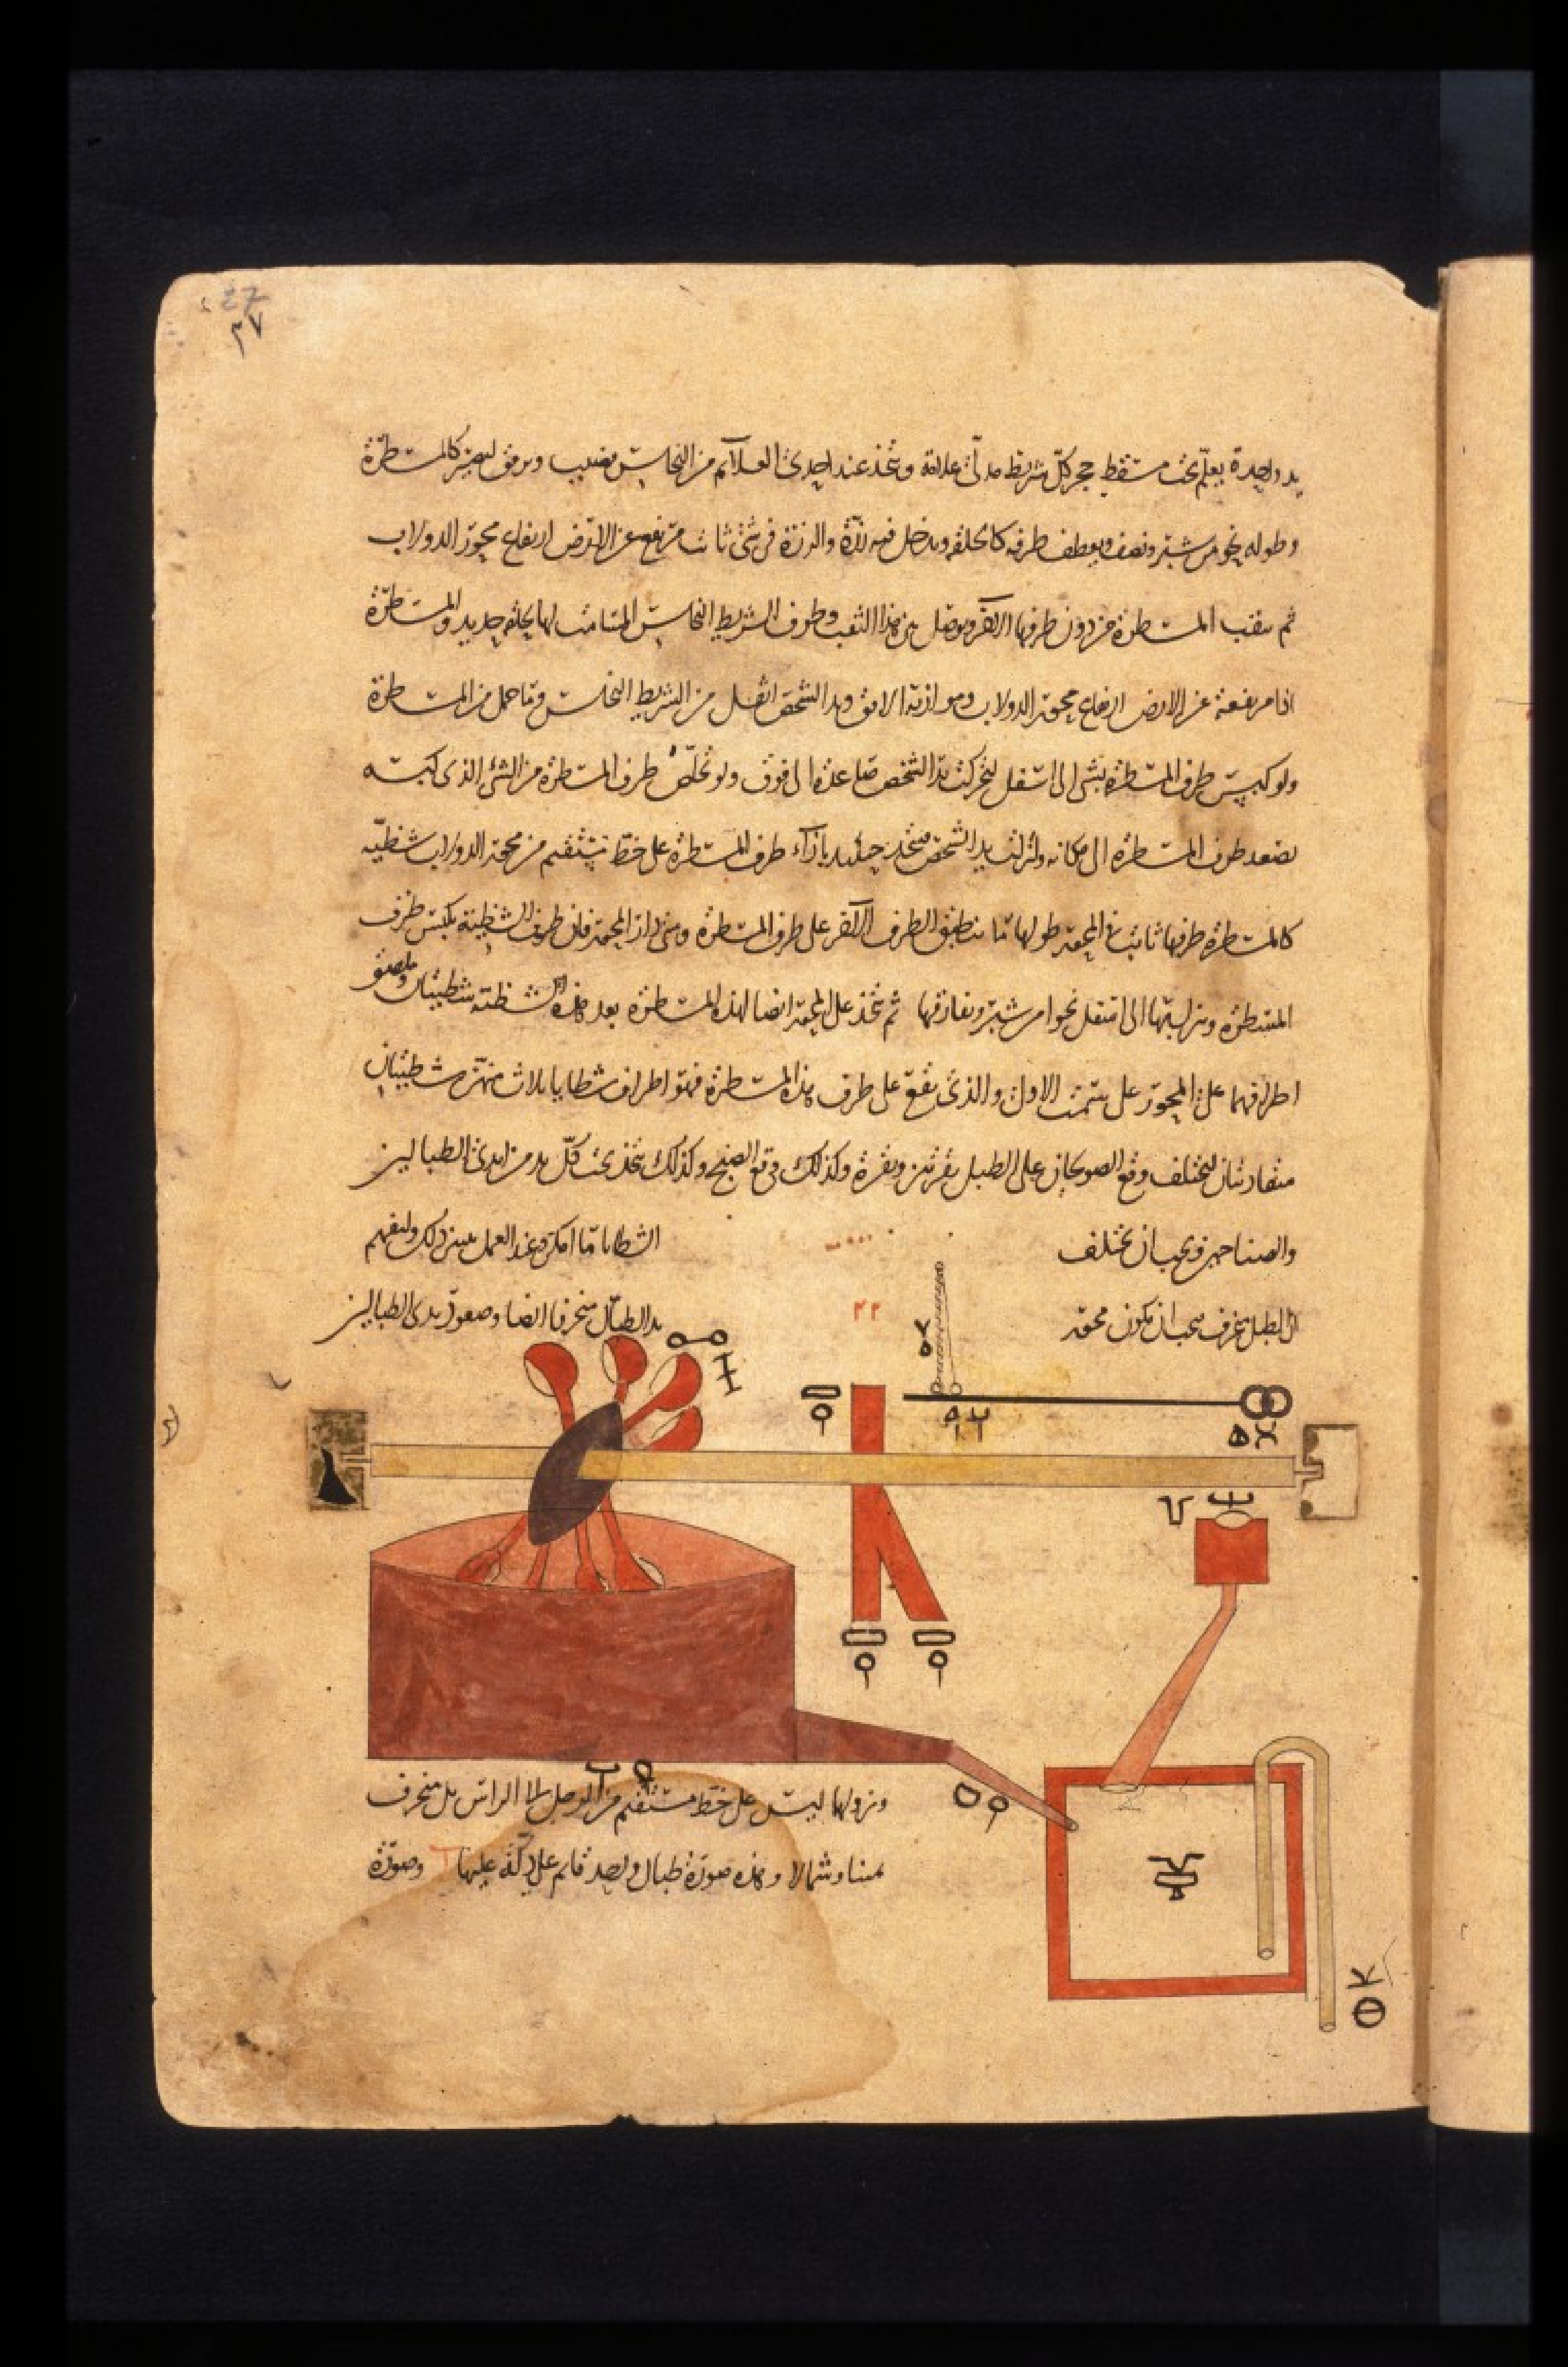 ٣٧
يد واحدة يعلم تحت مسقط حجر كل شريط مدلى علامة ويتخذ عند احدى العلائم من النحاس قضيب ويرقق ليصير كالمسطرة
وطوله نحو من شبر ونصف ويعطف طرفه كالحلقة ويدخل فيه رزة والرزة في شئ ثابت مرتفع عن الارض ارتفاع محور الدولاب
ثم يثقب المسطرة من دون طرفها الآخر ويوصل بين هذا الثقب وطرف الشريط النحاس المسامت لها بحلقة حديد والمسطرة
اذا مرتفعة عن الارض ارتفاع محور الدولاب وموازية الافق ويد الشخص اثقل من الشريط النحاس وما حمل من المسطرة
ولو كبس طرف المسطرة بشئ الى اسفل لتحركت يد الشخص صاعدة الى فوق ولو تخلص طرف المسطرة من الشئ الذى كبسه
لصعد طرف المسطرة الى مكانه ولنزلت يد الشخص فيتخذ حينئذ بازآء طرف المسطرة على خط مستقيم من محور الدولاب شظية
كالمسطرة طرفها ثابت فى المحور طولها ما ينطبق الطرف الآخر على طرف المسطرة ومتى دار المحور فان طرف الشظية يكبس طرف
المسطرة وينزل بها الى اسفل نحوا من شبر ويفارقها ثم يتخذ على المحور ايضا لهذه المسطرة بعد هذه الشظية شظيتان ويلصق
اطرافهما على المحور على سمت الاول والذى يقع على طرف هذه المسطرة فهو اطراف شظايا ثلاث منهن شظيتان
متقاربتان ليختلف وقع الصولجان على الطبل نقرتين ونقرة وكذلك وقع الصنج وكذلك يتخذ تحت كل يد من ايدى الطبالين
والصناجين ويجب ان تختلف الشظايا ما امكن وعند العمل يتبين ذلك وليفهم
ان الطبل منحرف فيجب ان يكون محور يد الطبال منحرفا ايضا وصعود يدى الطبالين
٢٢
ونزولها ليس على خط مستقيم من الرجل الى الراس بل منحرف
يمينا وشمالا وهذه صورة طبال واحد قائم على دكة عليها وصورة